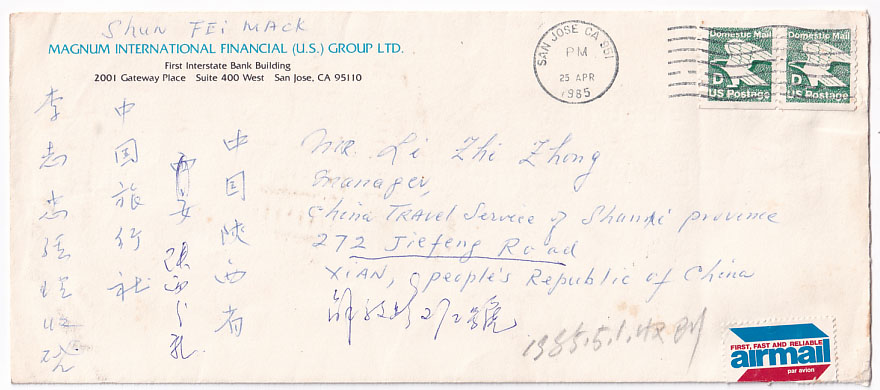 Shun Fei Mack
MAGNUM INTERNATIONAL FINANCIAL (U.S.) GROUP LTD.
First Interstate Bank Building
2001 Gateway Place Suite 400 West San Jose, CA 95110
SAN JOSE CA 951
PM
25 APR
1985
Domestic Mail
D
US Postage
Domestic Mail
D
US Postage
Mr. Li Zhi Zhong
manager,
China TRAVEL Service of Shanxi province
272 Jiefeng Road
XIAN, people's Republic of China
272號
中国陕西省
西安
中国旅行社
李志忠経理
1985.5.1.收
FIRST, FAST AND RELIABLE
airmail
par avion